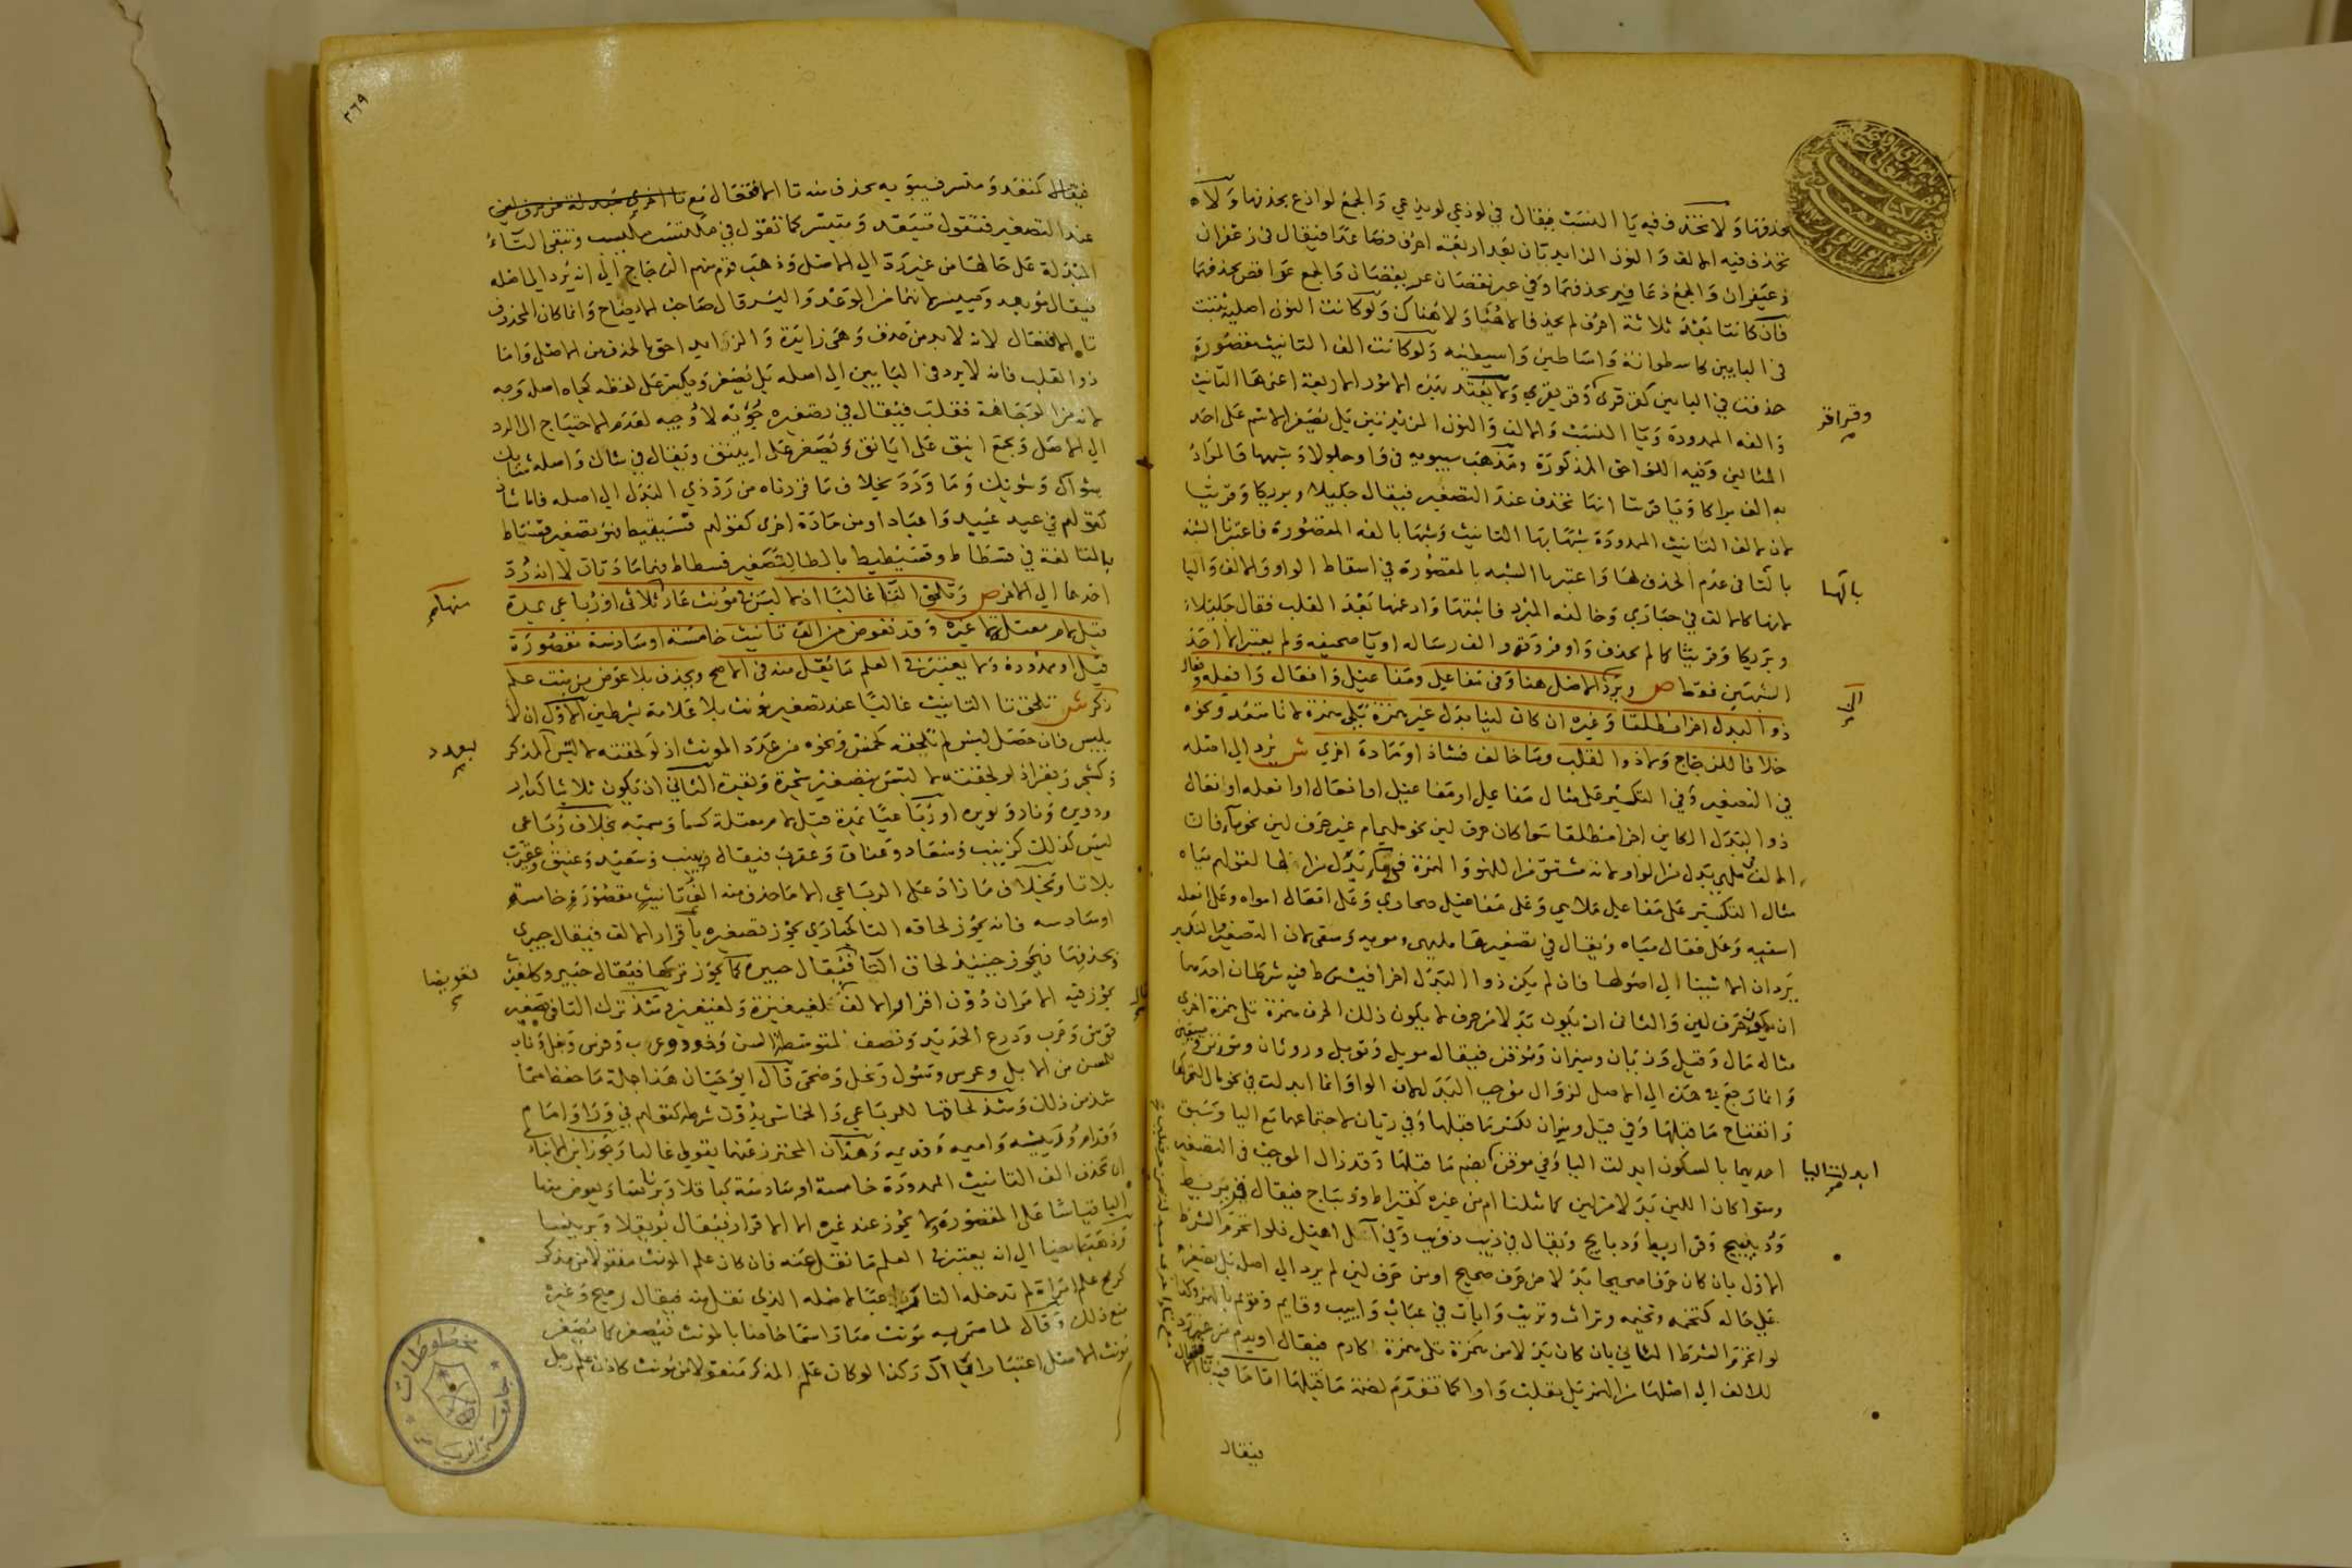 بحذفها ولا تحذف فيه يا النسب فيقال في لوذعي لويذعي والجمع لواذع بحذفها ولا
تحذف فيه الالف والنون الزايدتان بعد اربعة احرف فصاعدا فيقال في زعفران
زعيفران والجمع زعافر بحذفهما وفي
فان كانتا بعد ثلاثة احرف لم يحذفا لا هنا ولا هناك ولو كانت النون اصلية ثبتت
في البابين كاسطوانة واساطين واسيطينه ولو كانت الف التانيث مقصورة
حذفت في البابين كقرقرى وقريقري ولا يعتد بهذه الامور الاربعة اعني هاء التانيث
وقراقر
والفه الممدودة ويا النسب والالف والنون المزيدتين بل يصغر الاسم على احد
المثالين وفيه اللواحق المذكورة ومذهب سيبويه في واو جلولاء وشبهها كالمراد
به الف براكا ويا قريثا انها تحذف عند التصغير فيقال جليلا وبريكا وقريثا
لان لالف التانيث الممدودة شبها بها التانيث وشبها بالفه المقصورة فاعتبر الشبه
بالتا في عدم الحذف لها واعتبر الشبه بالمقصورة في اسقاط الواو والالف واليا
بالها
لانها كالالف في حباري وخالفه المبرد فاثبتها وادغمها بعد القلب فقال جليلاء
وبريكا وقريثا كما لم يحذف واو فروقه والف رساله ويا صحيفه ولم يعتبر الا احد
الشبهين فقط ص ويرد الاصل هنا وفي مفاعل ومفاعيل وافعال وافعله وفعال
ذو البدل اخرا مطلقا وغيره ان كان لينا بدل غير همزة تلي همزة لا تا متعد ونحوه
خلافا للزجاج ولا ذو القلب وما خالف فشاذ او مادة اخري ش يرد الي اصله
في التصغير وفي التكسير على مثال مفاعل او مفاعيل او افعال او افعله او فعال
ذو البدل الكاين اخرا مطلقا سوا كان حرف لين نحو ملهى ام غير حرف لين نحو ماء فان
الالف في ملهى بدل من الواو لانه مشتق من اللهو والهمزة في ماء بدل من الها لقولهم مياه
مثال التكسير على مفاعل ملاهي وعلى مفاعيل صحاري وعلى افعال امواه وعلى افعله
اسقيه وعلى فعال مياه ويقال في تصغيرها مليهي ومويه وسقي لان التصغير والتكسير
يردان الاشيا الي اصولها فان لم يكن ذو البدل اخرا فيشترط فيه شرطان احدهما
ان يكون حرف لين والثاني ان يكون بدلا من حرف لا يكون ذلك الحرف همزة تلي همزة اخرى
مثاله مال وقيل وريان وميزان وموقن فيقال مويل وقويل ورويان ومويزن ومييقن
وانما رجع في هذه الي الاصل لزوال موجب البدل لان الواو انما ابدلت في نحو مال لتحركها
وانفتاح ما قبلها وفي قيل وميزان لكسر ما قبلها وفي ريان لاجتماعها مع اليا وسبق
احديهما بالسكون ابدلت اليا وفي موقن بضم ما قبلها وقد زال الموجب في التصغير
ابدلت اليا
وسوا كان اللين بدلا من لين كما مثلنا ام من غيره كقيراط وديباج فيقال قريريط
ودبيبيج وقراريط ودبابيج ويقال في ذيب ذويب وفي آل اهيل فلو انخرم الشرط
الاول بان كان حرفا صحيحا بدلا من حرف صحيح او من حرف لين لم يرد الي اصله بل يصغر
علي حاله كتخمه وتخيمه وتراث وتريث وابات في عباب وابيب وقايم وقويم بالهمز وكذا
لو انخرم الشرط الثاني بان كان بدلا من همزة تلي همزة كادم فيقال اويدم من غير رد
للالف الي اصلها من الهمز بل بقلبت واوا كما تقدم لضمة ما قبلها اما ما فيه تا افتعال
فيقال
٣٦٩
فيقال كمتعد ومتسر فسيبويه يحذف منه تا الافتعال مع
عند التصغير فتقول متيعد ومتيسر كما تقول في مكتسب مكيسب وتبقى التاء
المبدلة على حالها من غير رد الي الاصل وذهب قوم منهم الزجاج الي انه يرد الي اصله
فيقال مويعد ومييسر لانهما من الوعد واليسر قال صاحب الايضاح وانما كان المحذوف
تا الافتعال لانه لا بد من حذف وهي زايدة والزايد احق بالحذف من الاصل واما
ذو القلب فانه لا يرد في البابين الي اصله بل يصغر ويكسر على لفظه كجاه اصله وجه
لانه من الوجاهة فقلب فيقال في تصغيره جويه لا وجيه لعدم الاحتياج الى الرد
الي الاصل وجمع اينق على ايانق وتصغر على اييننق ويقال في شاك واصله شايك
شواك وشويك وما ورد بخلاف ما قررناه من رد ذي البدل الي اصله فاما شاذ
كقولهم في عيد عييد واعياد او من مادة اخرى كقولهم فسيقيط فهو تصغير فستاط
بالتا لغة في فسطاط وفسيطيط بالطا لتصغير فسطاط فهما مادتان لا انه رد
احدهما الي الاخر ص وتلحق التا غالبا اذا لم يلبس في مونث عار ثلاثي او رباعي بمدة
منهما
قبل لام معتل لا غيره وقد تعوض من الف تانيث خامسة او سادسة مقصورة
قيل او ممدودة ولا يعتبر في العلم ما نقل منه في الاصح ويحذف بلا عوض من بنت علم
ذكر ش تلحق تا التانيث غالبا عند تصغير مونث بلا علامة بشرطين الاول ان لا
يلبس فان حصل لبس لم تلحقه كخمس ونحوه من عدد المونث اذ لو لحقته لالتبس المذكر
بعدد
وكشجر وبقر اذ لو لحقته لالتبس بتصغير شجرة وبقرة الثاني ان يكون ثلاثيا كدار
ودويره ونار ونويره او رباعيا بمدة قبل لام معتلة كسما وسميه بخلاف رباعي
ليس كذلك كزينب وسعاد وعناق وعقرب فيقال زيينب وسعيد وعنيق وعقيرب
بلا تا وبخلاف ما زاد على الرباعي الا ما حذف منه الف تانيث مقصورة خامسة
او سادسه فانه يجوز لحاقه التا كحباري يجوز تصغيره باقرار الالف فيقال حبيرى
وبحذفها فيجوز حينيذ لحاق التا فيقال حبيره كما يجوز تركها فيقال حبير وكلغيزى
تعويضا
يجوز فيه الامران دون اقرار الالف لغيغيزة ولغيغيز وشذ ترك التا في تصغير
قوس وحرب ودرع الحديد ونصف لمتوسطة السن وذود وعرب وفرس ونعل وناب
للمسن من الابل وعرس وشول ونحل وضحى قال ابو حيان هذا جملة ما حفظ مما
شذ من ذلك وشذ لحاقها للرباعي والخماسي بدون شرطه كقولهم في ورا وامام
وقدام وريئه واميمه وقديديمه وهذان المحترز عنهما بقولي غالبا وجوز ابن الانباري
ان تحذف الف التانيث الممدودة خامسة او سادسة كباقلا وبرناسا ويعوض منها
التا قياسا على المقصورة ولا يجوز عند غيره الا الاقرار فيقال بويقلا وبرينسا
وذهب بعضنا الي انه يعتبر في العلم ما نقل عنه فان كان علم المونث منقولا من مذكر
كرمح علم امراة لم تدخله التا اعتبارا لاصله الذي نقل منه فيقال رميح وغيره
منع ذلك وقال لما سمي به مونث صار اسما خاصا بالمونث فيصغر كما يصغر
مونث الاصل اعتبارا بالمآل وكذا لو كان علم المذكر منقولا من مونث كاذن علم رجل
مخطوطات
جامعة الرياض